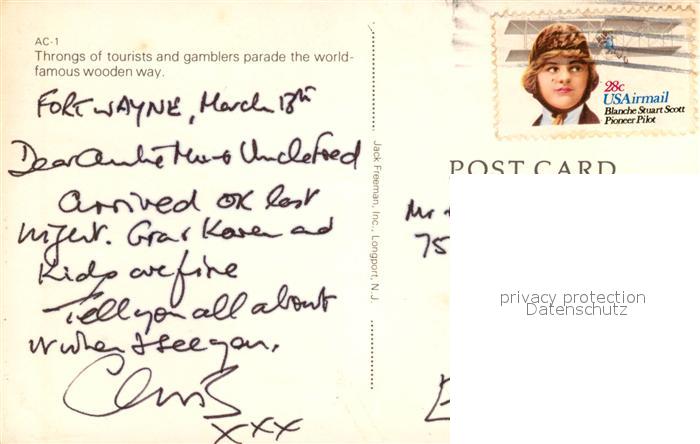 AC-1
Throngs of tourists and gamblers parade the world-
famous wooden way.
FORT WAYNE, March 18th
Dear Uncle
Arrived OK last
night. Karen and
Kids are fine
Tell you all about
it when I see you.
Chris
xxx
Jack Freeman, Inc., Longport, N.J.
28c
USAirmail
Blanche Stuart Scott
Pioneer Pilot
POST CARD
Mr
75
privacy protection
Datenschutz